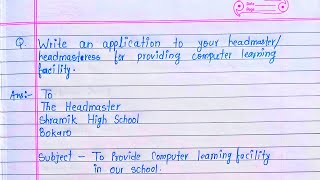 Date
Page
Q. Write an application to your headmaster/
headmastress for providing computer learning
facility.
Ans:- To
The Headmaster
Shramik High School
Bokaro
Subject - To Provide Computer learning facility
in our school.